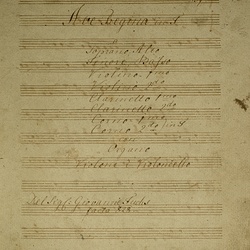 Ave Regina in
a
Soprano Alto
Tenore Basso
Violino Imo
Violino 2do
Clarinetto Imo
Clarinetto 2do
Corno Imo
Corno 2do
Organo
Violone e Violoncello
Del Sigre Giovanni Fuchs